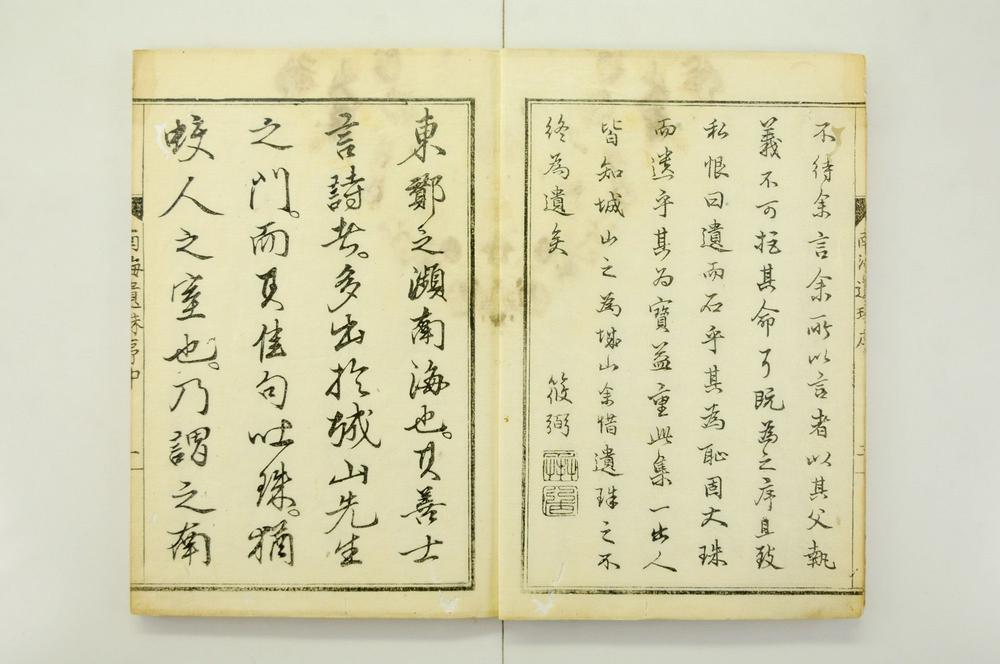 不待余言余所以言者以其父執
義不可拒其命可既為之序且致
私恨曰遺而石乎其為恥固大珠
而遺乎其為寶益重此集一出人
皆知城山之為珠山余惜遺珠之不
終為遺矣
筱弼
東鄰之瀕南海也。其善士
言詩者。多出於城山先生
之門。而其佳句吐珠。猶
蛟人之室也。乃謂之南
南海遺珠序